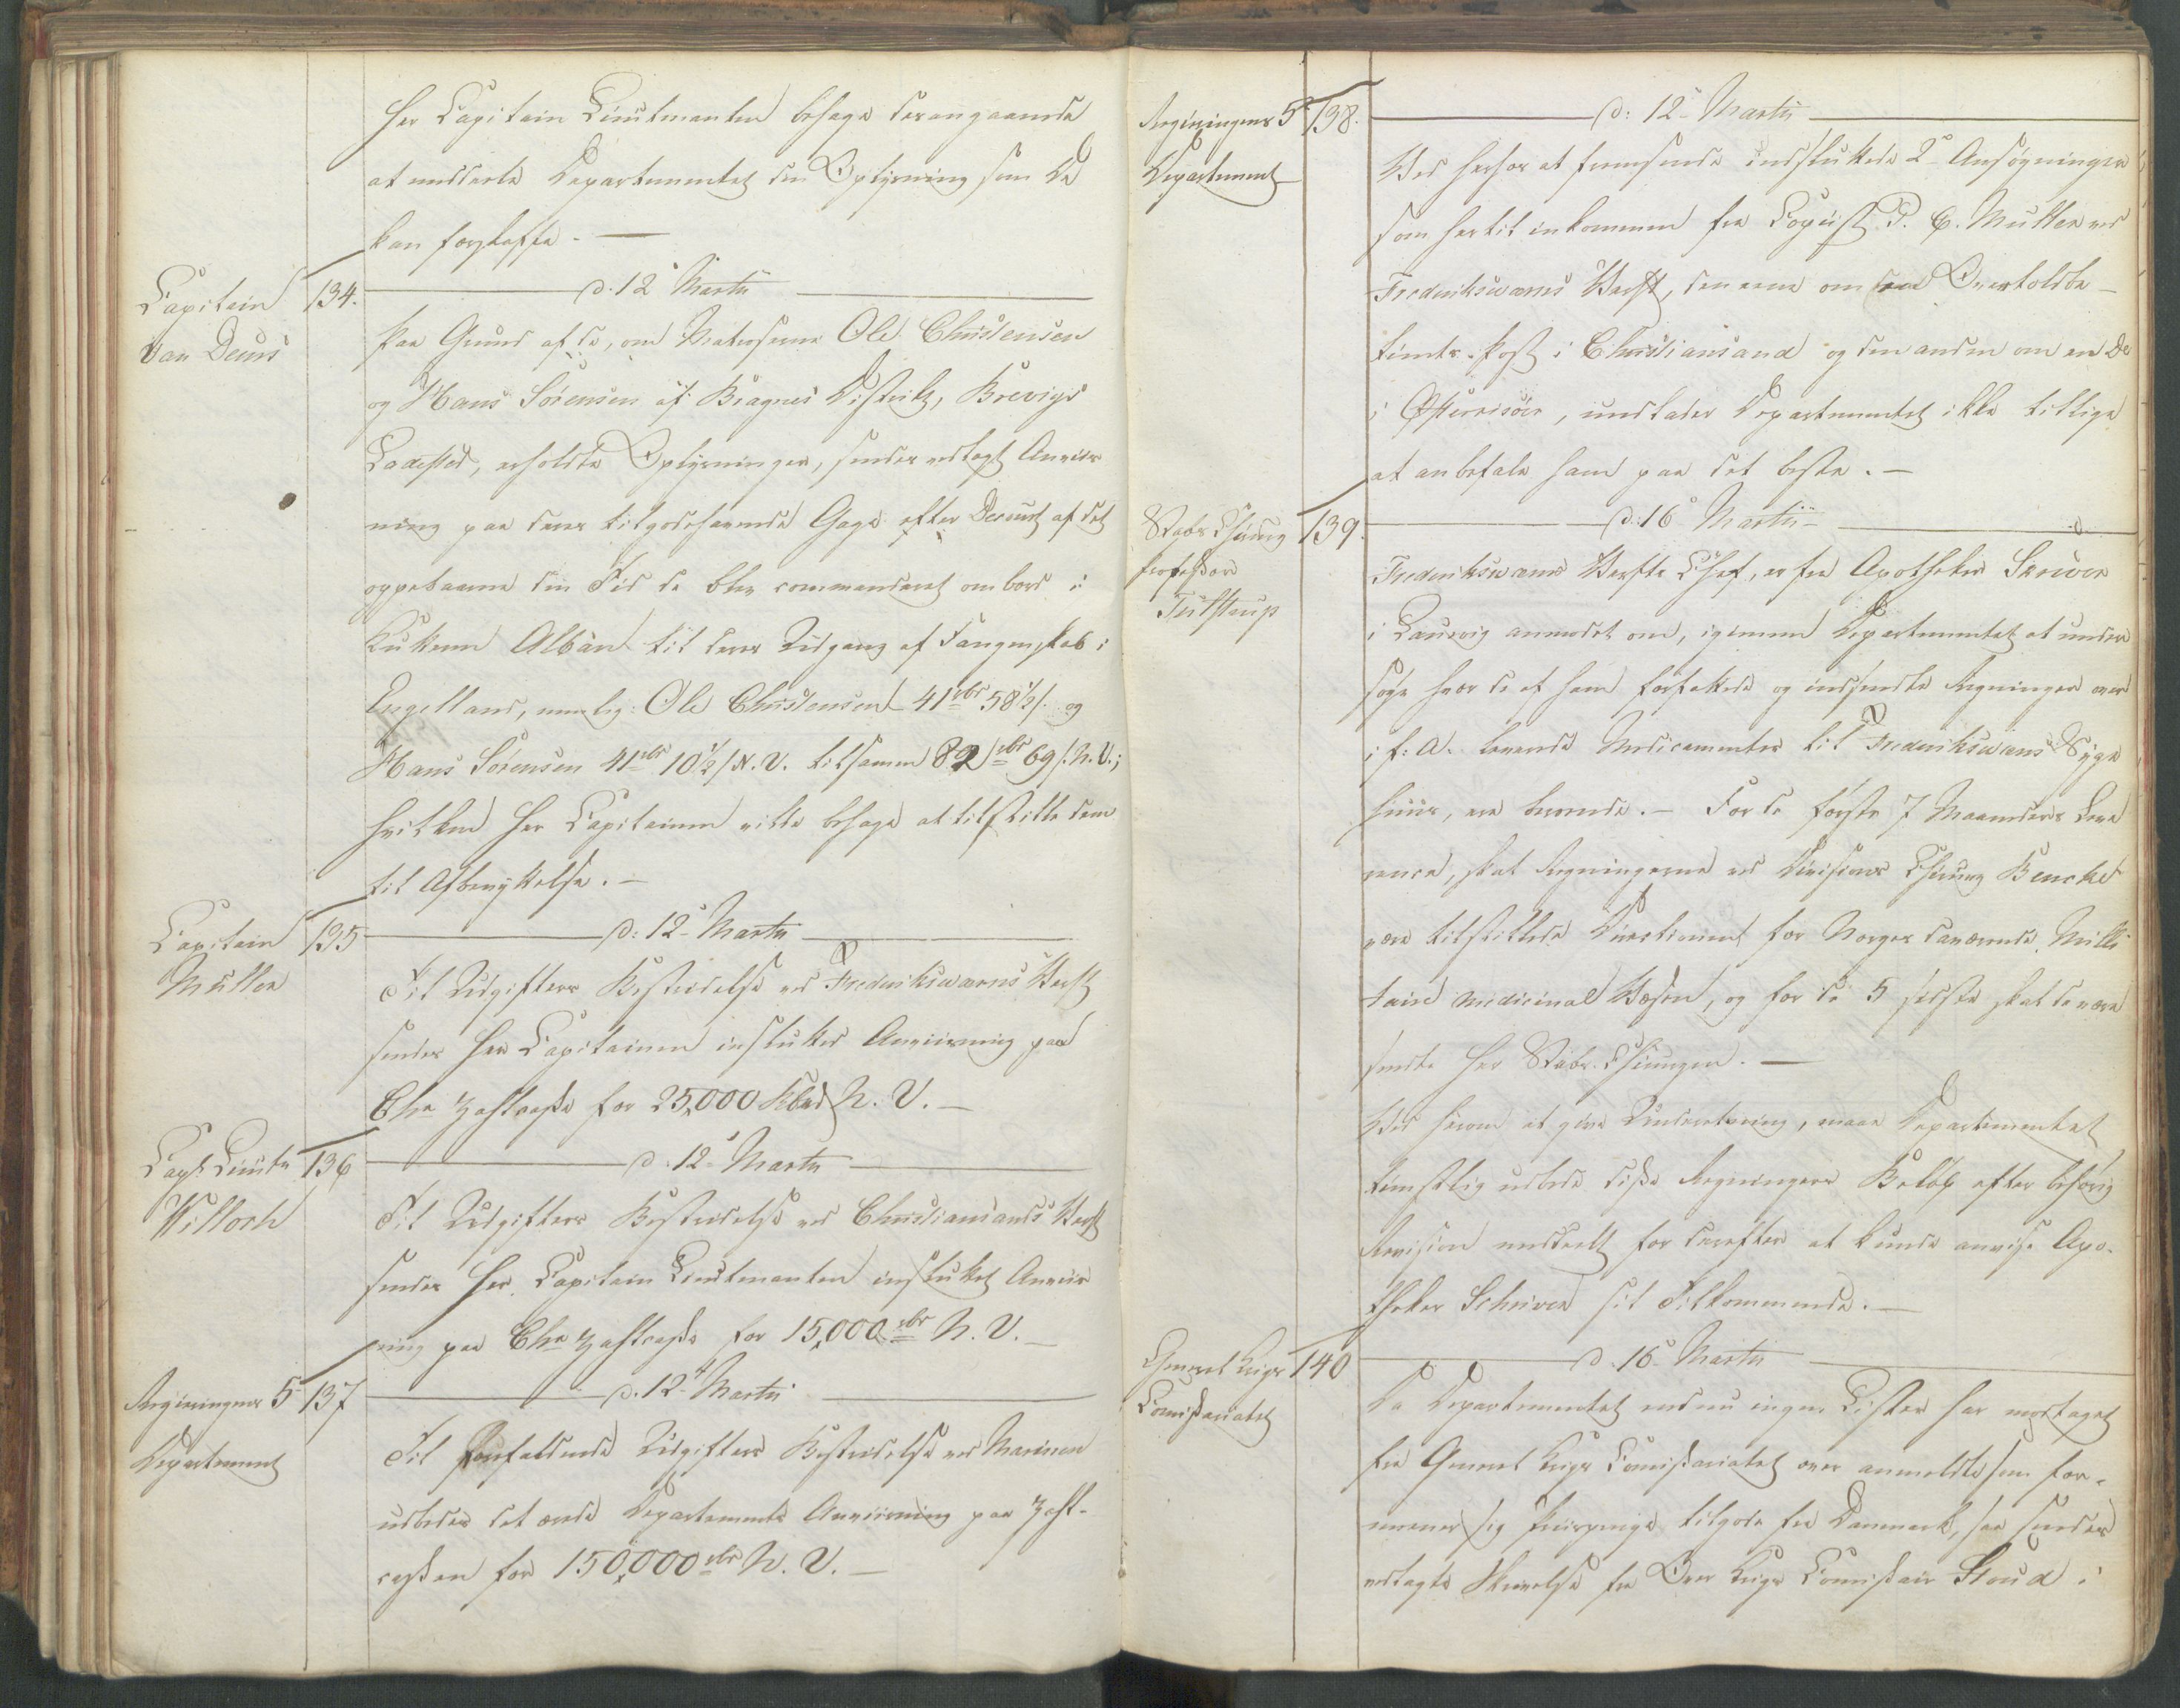 Her Capitain Lieutenanten behage desangaaende
at meddeele Departementet den Oplysning som De
kan forskaffe. —
Capitain
van Deurs
134.
d. 12te Martii
Paa Grund af de, om Matroserne Ole Christensen
og Hans Sörensen af Bragnes District, Brevigs
Ladested, erholdte Oplysninger, sendes vedlagt Anviis
ning paa deres tilgodehavende Gage efter Decourt af det
oppebaarne den Tid de blev commanderet ombord i
Kutteren Alban til deres Udgang af Fangenskab i
Engelland, nemlig: Ole Christensen 41 rbr 58½ s. og
Hans Sörensen 41 rbr 10½ s N. V. tilsamen 82 rbr 69 s. N. V.;
hvilken Her Capitainen ville behage at tilstille dem
til Afbenyttelse. —
Capitain
Müller
135
d: 12te Martii
Til Udgifters Bestridelse ved Frederiksværns Værft
sendes Her Capitainen indsluttet Anviisning paa
Chra Zahlcasse for 25,000 Rbd N. V. —
Capt: Lieutn
Willoch
136
d. 12te Martii
Til Udgifters Bestridelse ved Christiansands Værft
sendes Her Capitain Lieutenanten indsluttet Anviis
ning paa Chra Zahlcasse for 15,000 rbr N. V. —
Regieringens 5
Departement
137
d. 12te Martii
Til forefaldende Udgifters Bestridelse ved Marinen
udbedes det ærede Departements Anviisning paa Zahl-
cassen for 150,000 rbr N. V. —
Regieringens 5te
Departement
138.
d: 12te Martii
Ved herhos at fremsende indsluttede 2de Ansøgninger
som hertil indkommen fra Copiist P. C. Müller ved
Frederiksværns Værft, den eene om en Overtoldbe-
tients-Post i Christiansand og den anden om en De
i Østerrisöer, undlader Departementet ikke tillige
at anbefale ham paa det beste. —
Stabs Chirurg
Professor
Tulstrup
139.
d: 16de Martii
Frederiksværns Værfts Chef, er fra Apotheker Skriver
i Laurvig anmodet om, igiennem Departementet at under
søge hvor de af ham forfattede og indsendte Regninger over
i f: A. leverede Medicamenter til Frederiksværns Syge
huus, ere beroende. — For de første 7 Maaneders Leve
rance, skal Regningerne ved Divisions Chirurg Bencke
være tilstillede Directionen for Norges daværende Milli
taire medicinal Væsen, og for de 5 sidste skal de være
sendte Her Stabs-Chirurgen. —
Ved herom at give Underretning, maae Departementet
tienstlig udbede disse Regningers Beløb efter behørig
Revision meddeelt for derefter at kunde anvise Apo-
theker Schriver sit Tilkommende. —
General Krigs
Comissariatet
140
d. 16de Martii
Da Departementet endnu ingen Lister har modtaget
fra General Krigs Comissariatet over anmeldte som for-
meener sig Priispenge tilgode fra Danmark, saa sendes
vedlagte Skrivelse fra Over Krigs Comissair Stoud i